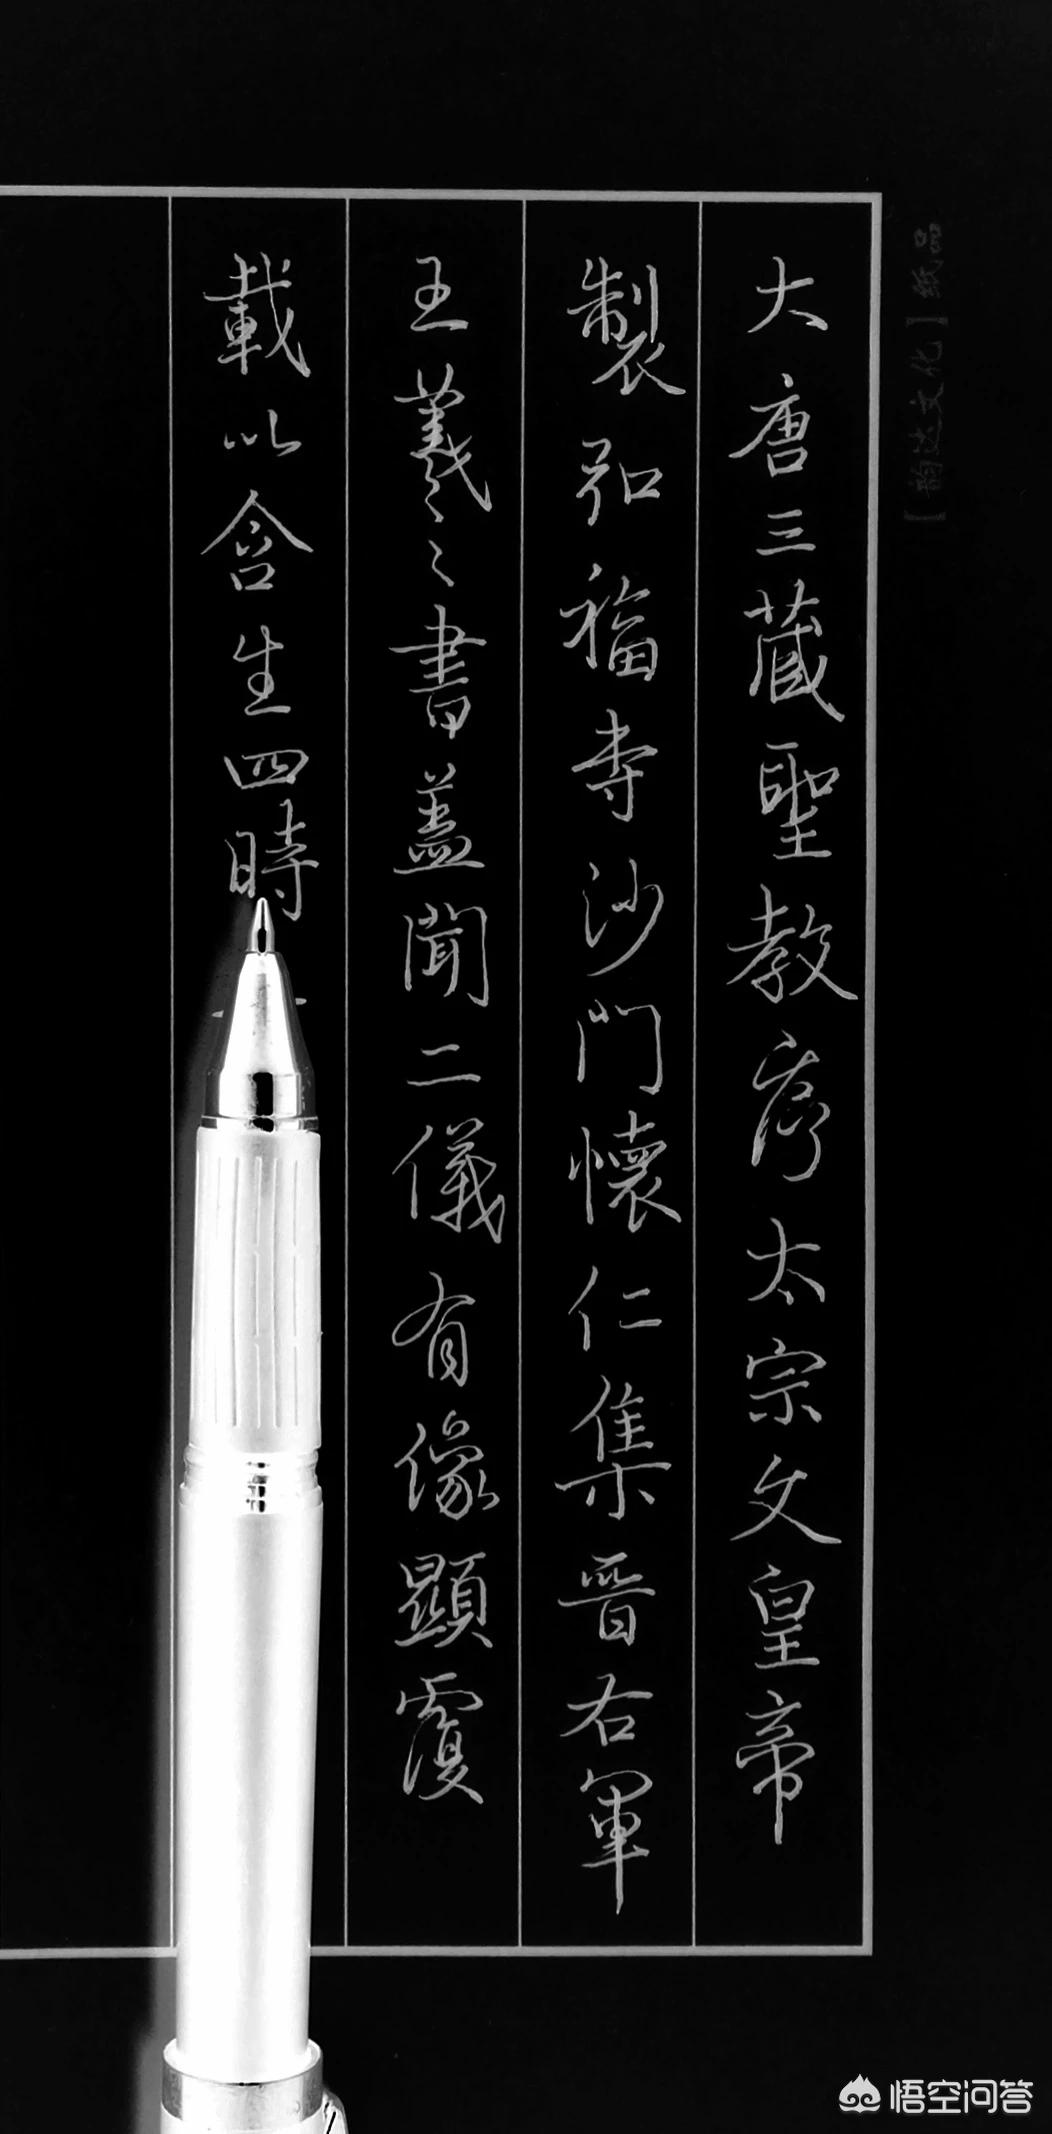 大唐三藏聖教序太宗文皇帝
製弘福寺沙門懷仁集晉右軍
王羲之書蓋聞二儀有像顯覆
載以含生四時
【韵达文化】纸品
悟空问答